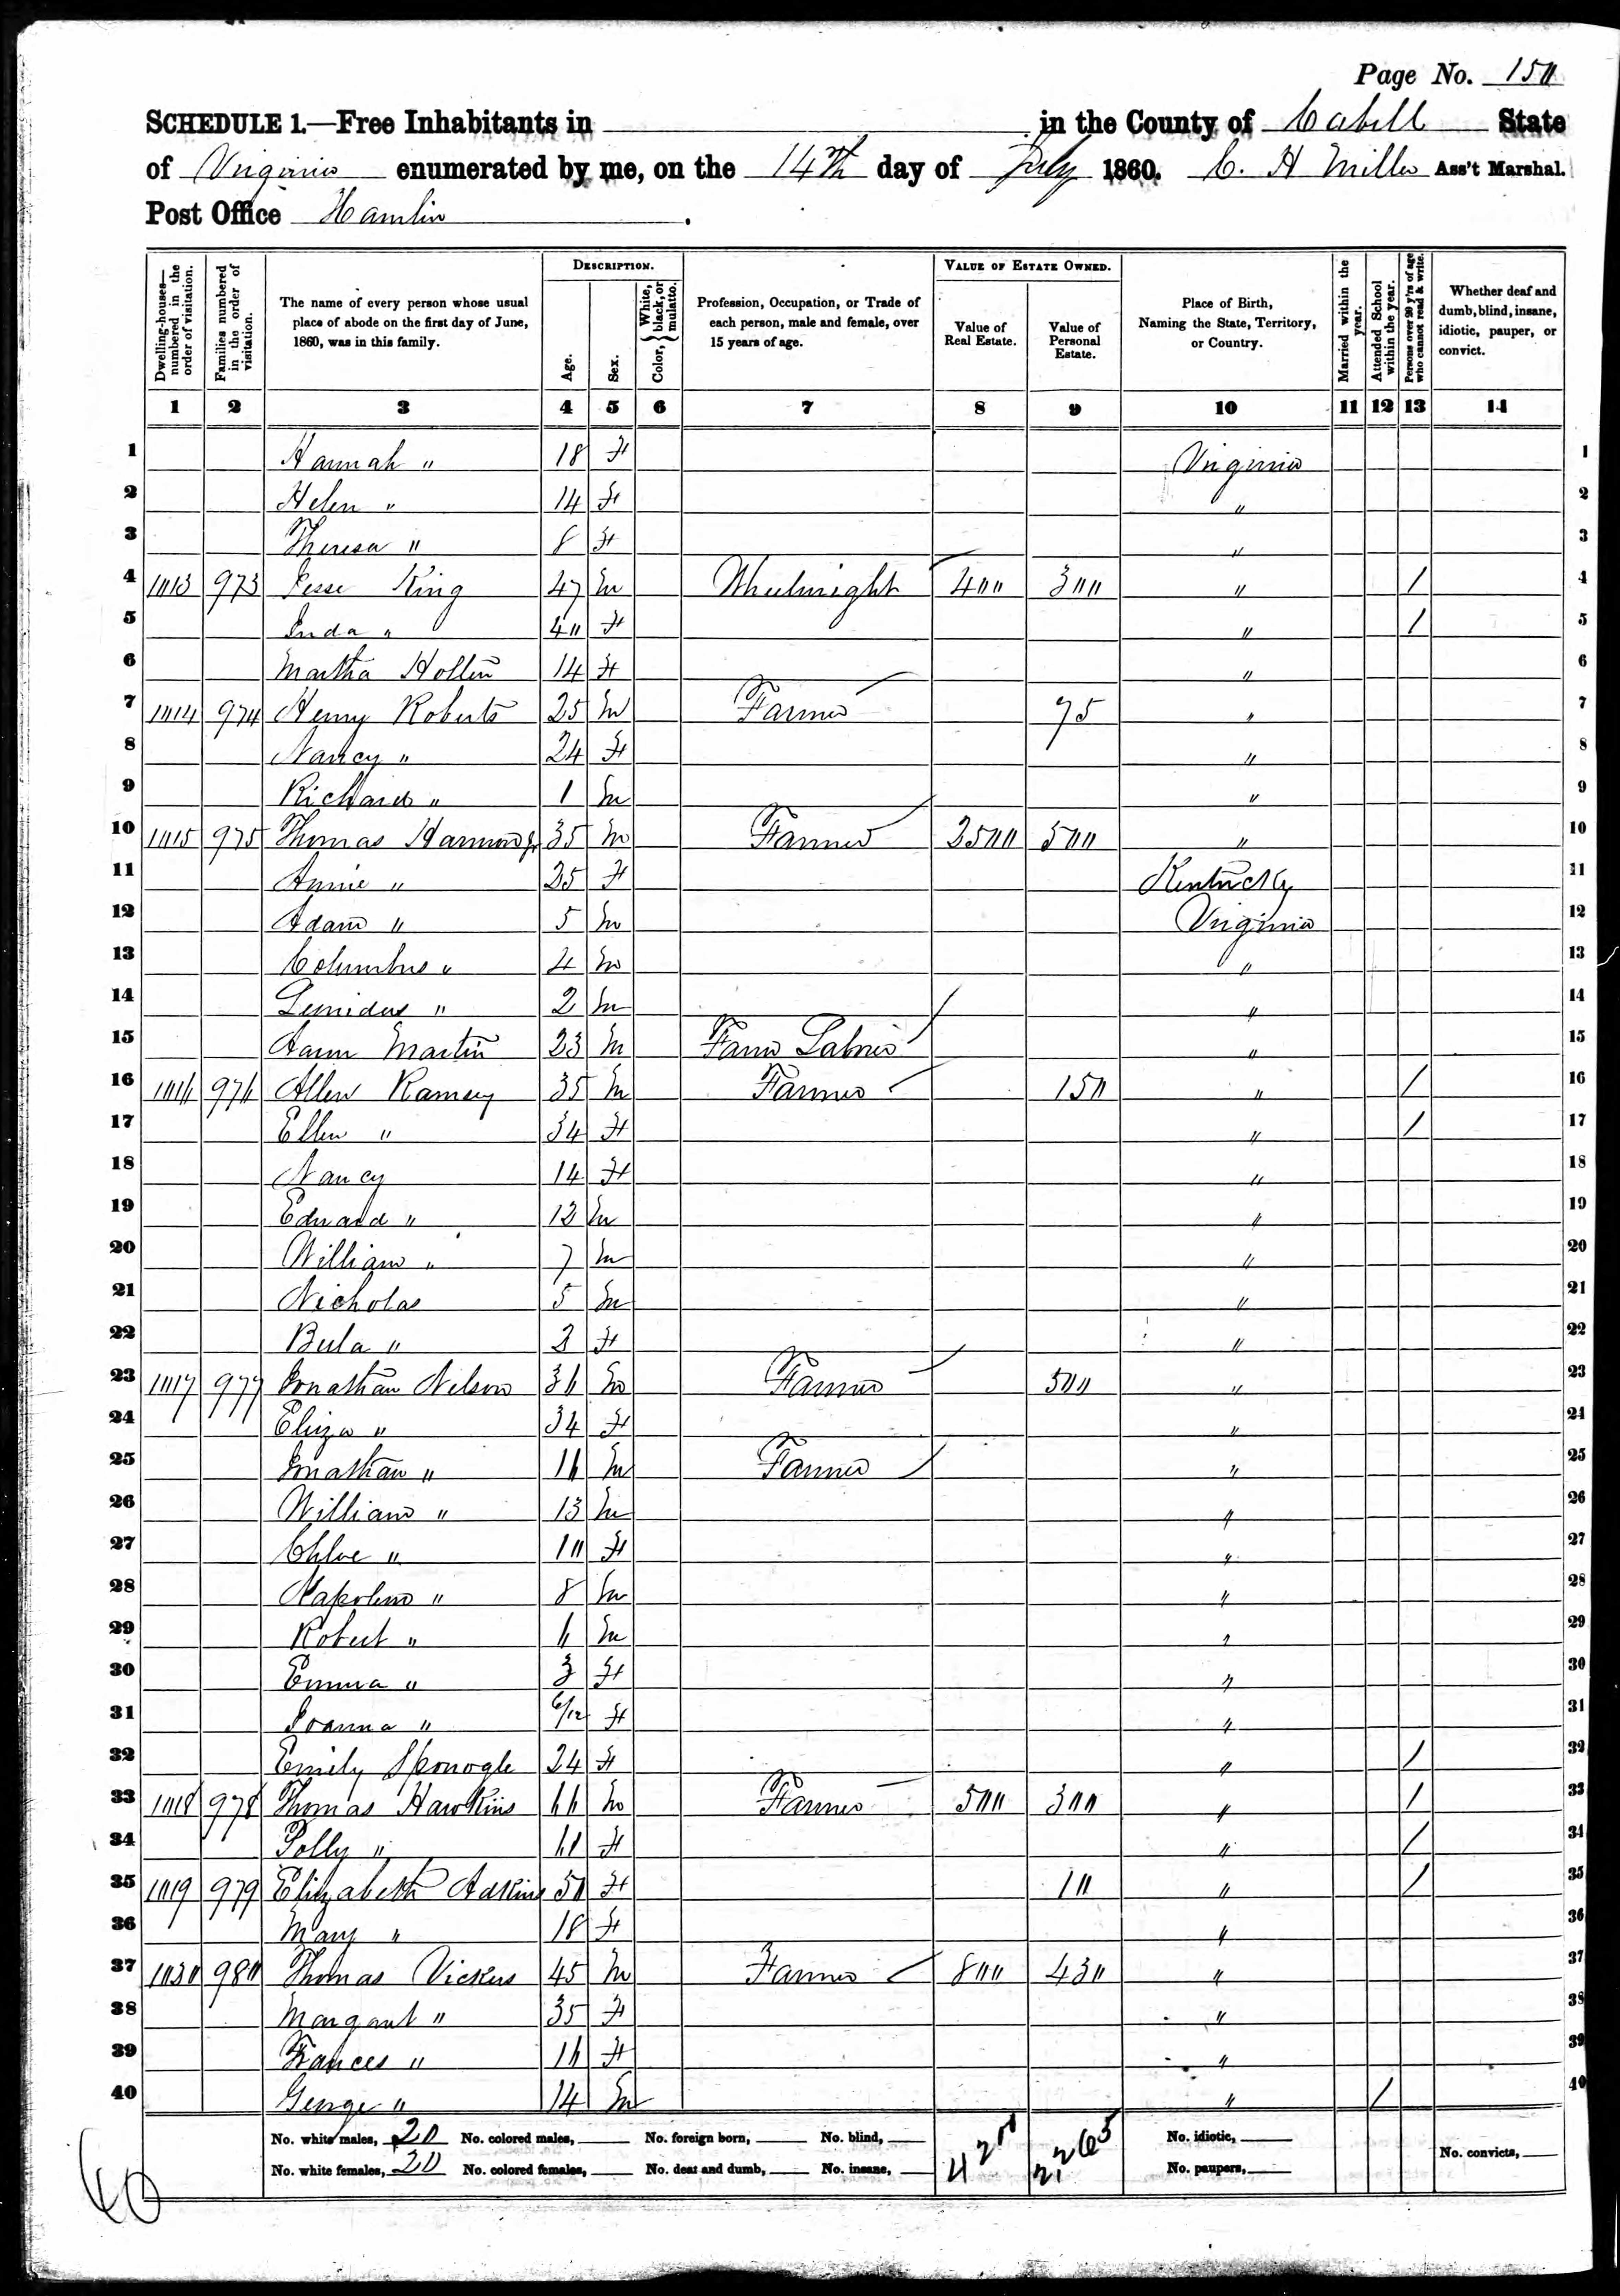 Page No. 150
SCHEDULE 1.—Free Inhabitants in in the County of Cabell State
of Virginia enumerated by me, on the 14th day of July 1860. C. H Miller Ass't Marshal.
Post Office Hamlin.
Dwelling-houses—numbered in the order of visitation. Families numbered in the order of visitation. The name of every person whose usual place of abode on the first day of June, 1860, was in this family. DESCRIPTION. Age. Sex. Color, { White, black, or mulatto. Profession, Occupation, or Trade of each person, male and female, over 15 years of age. VALUE OF ESTATE OWNED. Value of Real Estate. Value of Personal Estate. Place of Birth, Naming the State, Territory, or Country. Married within the year. Attended School within the year. Persons over 20 y'rs of age who cannot read & write. Whether deaf and dumb, blind, insane, idiotic, pauper, or convict.
1 2 3 4 5 6 7 8 9 10 11 12 13 14
1 Hannah " 18 F Virginia 1
2 Helen " 14 F " 2
3 Theresa " 8 F " 3
4 1013 973 Jesse King 47 M Wheelwright 400 300 " / 4
5 " 40 F " / 5
6 Martha 14 F " 6
7 1014 974 Henry Roberts 25 M Farmer 75 " 7
8 Nancy " 24 F " 8
9 Richard " 1 M " 9
10 1015 975 Thomas Harmon Jr 35 M Farmer 2500 500 " 10
11 Annie " 25 F Kentucky 11
12 Adam " 5 M Virginia 12
13 Columbus " 4 M " 13
14 Leonidus " 2 M " 14
15 Martin 23 M Farm Laborer " 15
16 1016 976 Allen Ramsey 35 M Farmer 150 " / 16
17 Ellen " 34 F " / 17
18 Nancy 14 F " 18
19 Edward " 12 M " 19
20 William " 7 M " 20
21 Nicholas 5 M " 21
22 Bula " 2 F " 22
23 1017 977 Jonathan Nelson 36 M Farmer 500 " 23
24 Eliza " 34 F " 24
25 Jonathan " 16 M Farmer " 25
26 William " 13 M " 26
27 Chloe " 10 F " 27
28 Napoleon " 8 M " 28
29 Robert " 6 M " 29
30 Emma " 3 F " 30
31 Joanna " 6/12 F " 31
32 Emily Sponogle 24 F " / 32
33 1018 978 Thomas Hawkins 66 M Farmer 500 300 " / 33
34 Polly " 61 F " / 34
35 1019 979 Elizabeth Adkins 50 F 10 " / 35
36 Mary " 18 F " 36
37 980 Thomas Vickers 45 M Farmer 800 430 " 37
38 Margaret " 35 F " 38
39 Frances " 16 F " 39
40 George " 14 M " / 40
No. white males, 20 No. colored males, No. foreign born, No. blind, 4200 2,265 No. idiotic,
No. white females, 20 No. colored females, No. deaf and dumb, No. insane, No. paupers, No. convicts,
40